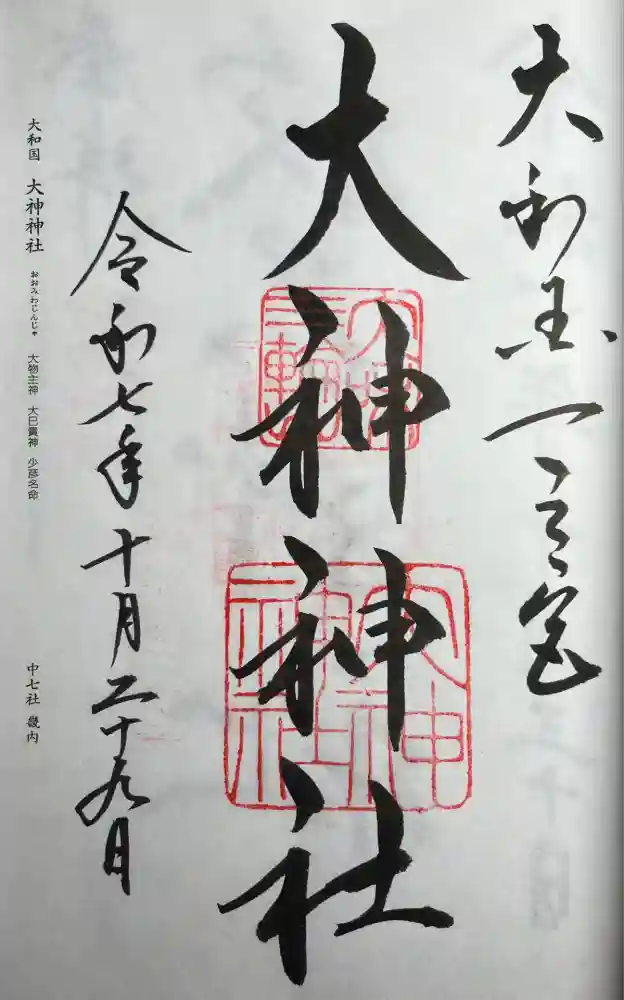 大和国一之宮
大神神社
令和七年十月二十九日
大和国 大神神社 おおみわじんじゃ 大物主神 大己貴神 少彦名命 中七社 畿内
大神神社